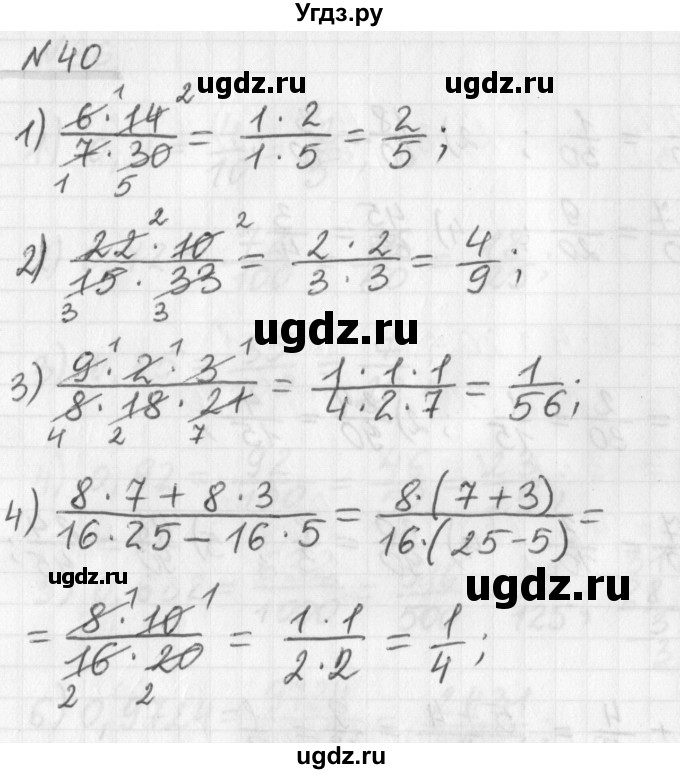 Угдз.ру
№ 40
ugdz.ru
ugdz.ru
1) 6 · 14 / 7 · 30 = 1 · 2 / 1 · 5 = 2/5;
1 2
1 5
2) 22 · 10 / 15 · 33 = 2 · 2 / 3 · 3 = 4/9;
2 2
3 3
ugdz.ru
3) 9 · 2 · 3 / 8 · 18 · 21 = 1 · 1 · 1 / 4 · 2 · 7 = 1/56;
1 1 1
4 2 7
4) 8 · 7 + 8 · 3 / 16 · 25 – 16 · 5 = 8 · (7 + 3) / 16 · (25 - 5) =
ugdz.ru
ugdz.ru
= 8 · 10 / 16 · 20 = 1 · 1 / 2 · 2 = 1/4;
1 1
2 2
ugdz.ru